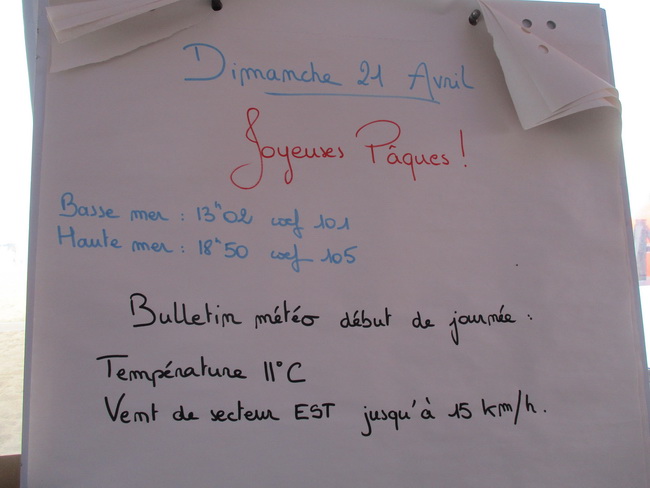 Dimanche 21 Avril
Joyeuses Pâques !
Basse mer : 13h02 coef 101
Haute mer : 18h50 coef 105
Bulletin météo début de journée :
Température 11°C
Vent de secteur EST jusqu'à 15 km/h.